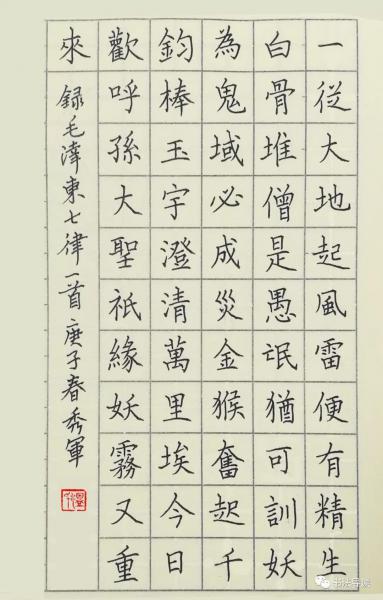 一從大地起風雷便有精生
白骨堆僧是愚氓猶可訓妖
為鬼域必成災金猴奮起千
鈞棒玉宇澄清萬里埃今日
歡呼孫大聖祇緣妖霧又重
來
録毛澤東七律一首 庚子春秀軍
书法导读